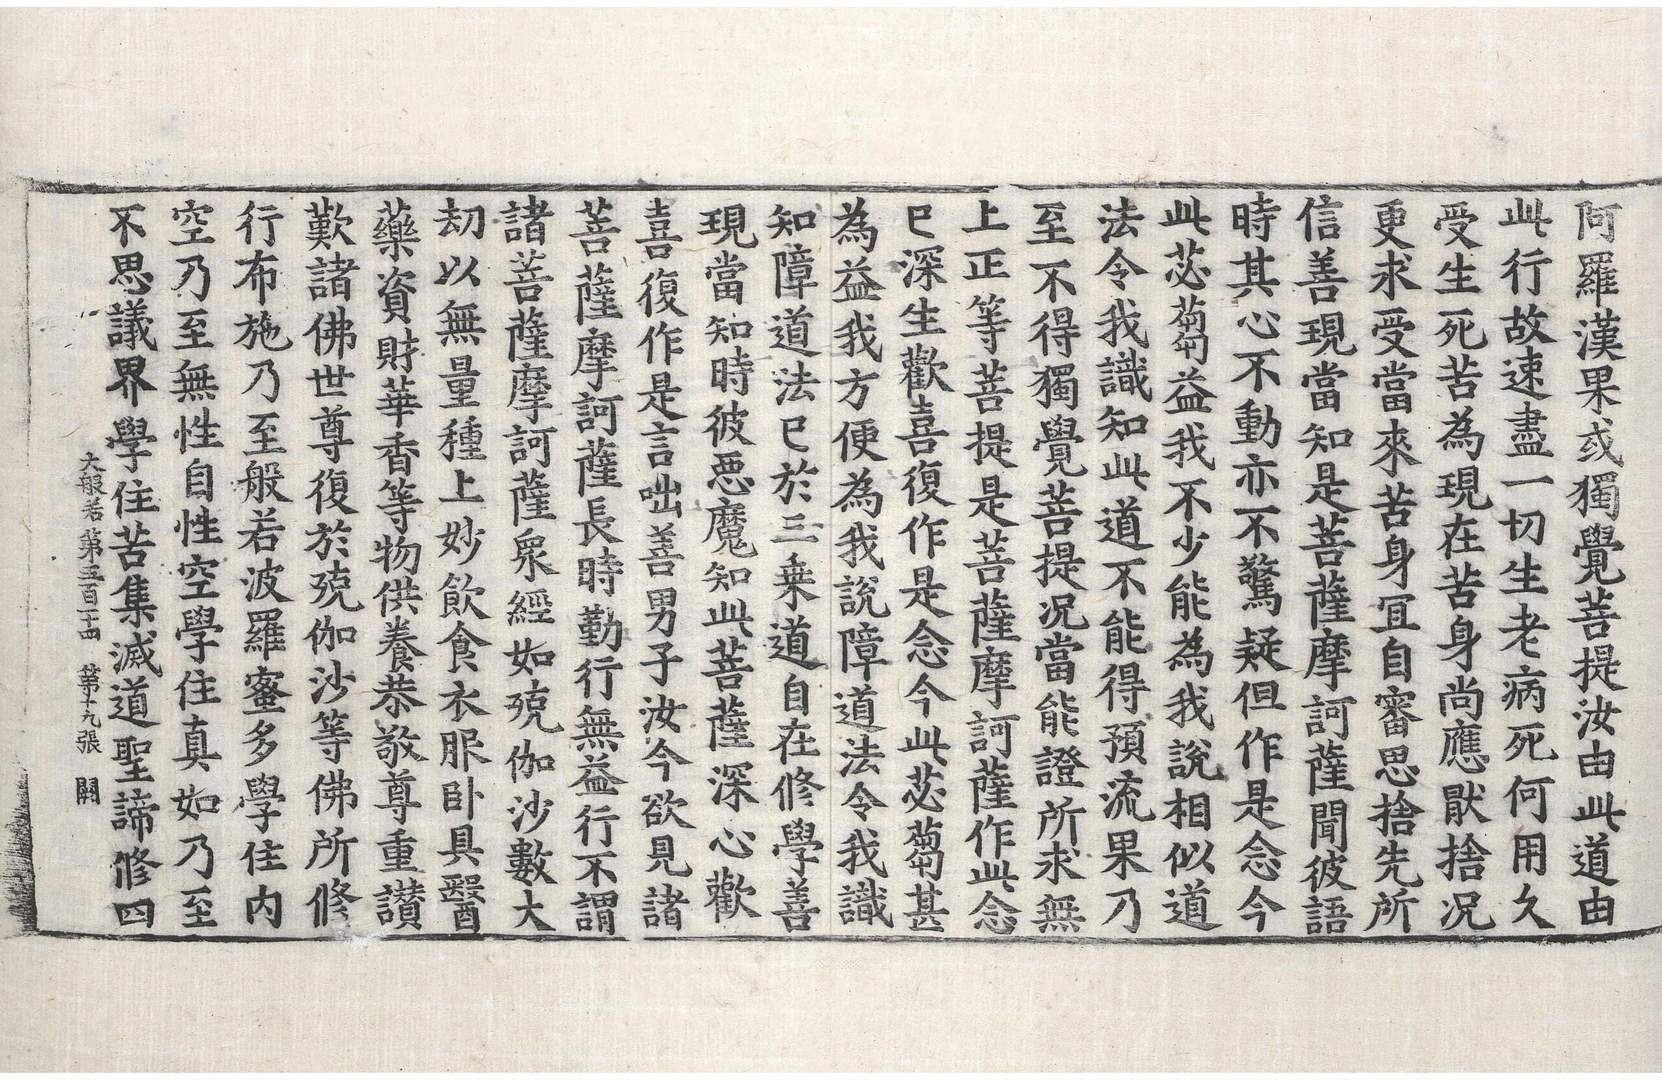 阿羅漢果或獨覺菩提汝由此道由
此行故速盡一切生老病死何用久
受生死苦為現在苦身尚應猒捨況
更求受當來苦身冝自審思捨先所
信善現當知是菩薩摩訶薩聞彼語
時其心不動亦不驚疑但作是念今
此苾蒭益我不少能為我說相似道
法令我識知此道不能得預流果乃
至不得獨覺菩提況當能證所求無
上正等菩提是菩薩摩訶薩作此念
已深生歡喜復作是念今此苾蒭甚
為益我方便為我說障道法令我識
知障道法已於三乗道自在修學善
現當知時彼惡魔知此菩薩深心歡
喜復作是言咄善男子汝今欲見諸
菩薩摩訶薩長時勤行無益行不謂
諸菩薩摩訶薩衆經如殑伽沙數大
劫以無量種上妙飲食衣服卧具醫
藥資財華香等物供養恭敬尊重讃
歎諸佛世尊復於殑伽沙等佛所修
行布施乃至般若波羅蜜多學住内
空乃至無性自性空學住真如乃至
不思議界學住苦集滅道聖諦修四
大般若第五百十四 第十九張 闕